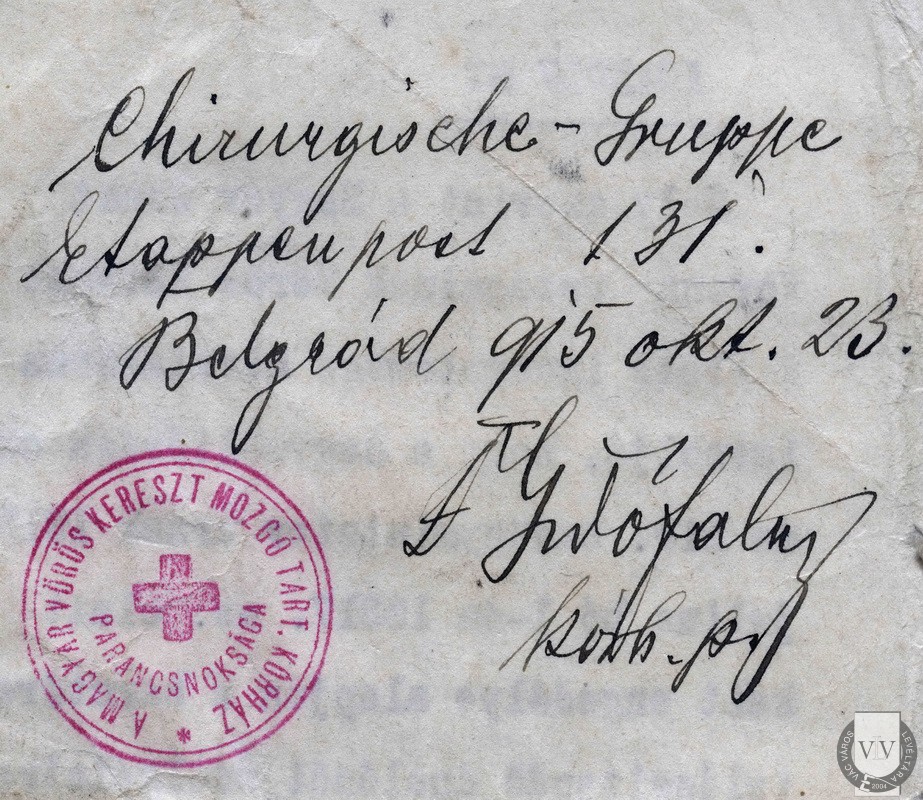 Chirurgische-Gruppe
Etappenpost 131.
Belgrád 915 okt. 23.
Dr
kórh. pk
A MAGYAR VÖRÖS KERESZT MOZGÓ TART. KÓRHÁZ
PARANCSNOKSÁGA
*
VÁC VÁROS LEVÉLTÁRA
VVL
2004